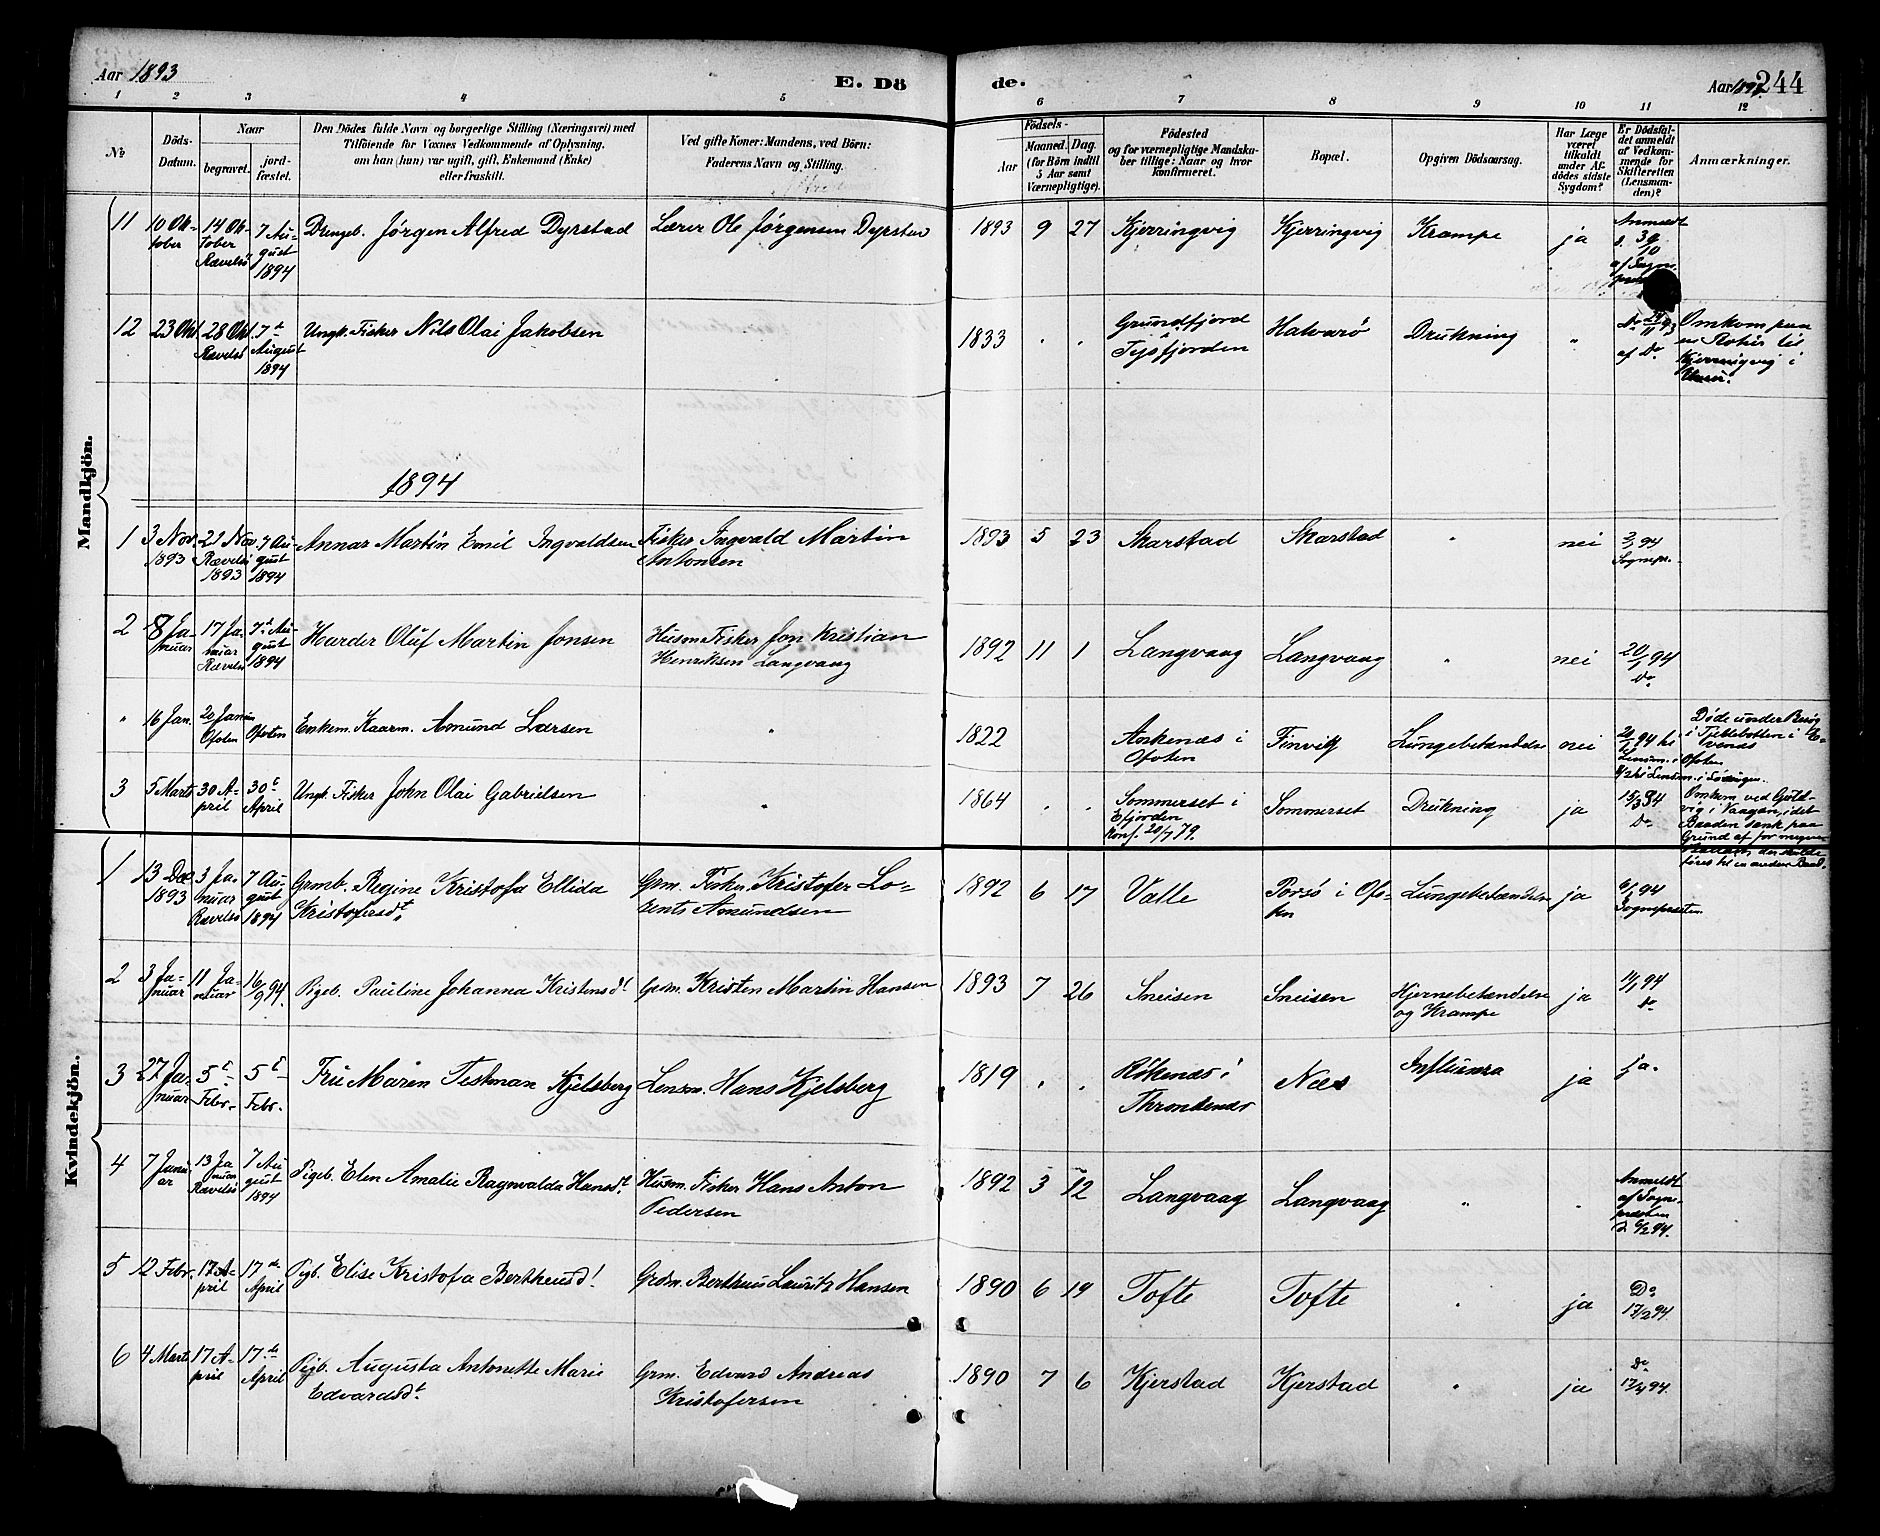 Aar 1893 E. Dö de. Aar 1894 244
1 2 3 4 5 6 7 8 9 10 11 12
№
Döds-
Datum.
Naar
begravet.
jord-
fæstet.
Den Dödes fulde Navn og borgerlige Stilling (Næringsvei) med
Tilföiende for Voxnes Vedkommende af Oplysning,
om han (hun) var ugift, gift, Enkemand (Enke)
eller fraskilt.
Ved gifte Koner: Mandens, ved Börn:
Faderens Navn og Stilling.
Födsels-
Aar
Maaned. Dag.
(for Börn indtil
5 Aar samt
Værnepligtige).
Födested
og for værnepligtige Mandska-
ber tillige: Naar og hvor
konfirmeret.
Bopæl.
Opgiven Dödsaarsag.
Har Læge
været
tilkaldt
under Af-
dödes sidste
Sygdom?
Er Dödsfal-
det anmeldt
af Vedkom-
mende for
Skifteretten
(Lensman-
den)?
Anmærkninger.
Mandkjön.
11 10 Ok-
tober
14 Ok-
tober
Rævelsö
7 Au-
gust
1894
Drengeb. Jörgen Alfred Dyrstad
Lærer Ole Jörgensen Dyrstad
1893 9 27 Kjerringvig Kjerringvig Krampe ja
Anmeldt
12 23 Okt. 28 Okt
Rævelsö
7de
August
1894
Ungk. Fisker Nils Olai Jakobsen
1833 " " Grundfjord
i
Tysfjorden
Halvarö Drukning "
af Do
Omkom paa
en Rotür til
Kjerringvig i
1894
1 3 Nov.
1893
21 Nov.
Rævelsö
1893
7 Au-
gust
1894
Annar Martin Emil Ingvaldsen
Fisker Ingvald Martin
Antonsen
1893 5 23 Skarstad Skarstad " nei
2/1 94
Sognepr.
2 8 Ja-
nuar
17 Ja-
nuar
Rævelsö
7de Au-
gust
1894
Harder Oluf Martin Jonsen
Husm. Fisker Jon Kristian
Henriksen Langvaag
1892 11 1 Langvaag Langvaag " nei
20/1 94
Do
" 16 Jan. 20 Januar
Ofoten
Ofoten
Enkem. Kaarm. Amund Larsen
"
1822 Ankenæs i
Ofoten
Finvik Lungebetændelse nei
Döde under Besög
i Tjeldebotten i E-
venæs
Ofoten
3 5 Marts 30 A-
pril
30te
April
Ungk. Fisker John Olai Gabrielsen
"
1864 " " Sommerset i
Efjorden
Konf. 20/7 79.
Sommerset Drukning ja
15/3 94
Do
Omkom ved Gjöld-
vig i Vaagan, idet
Baaden sank paa
Grund af for megen
Ballast, der skulde
föres til en anden Baad.
Kvindekjön.
1 13 Dec.
1893
3 Ja-
nuar
Rævelsö
7 Au-
gust
1894
Grmb. Regine Kristofa Ellida
Kristofersdt
Grm. Fisker Kristofer Lo-
rents Amundsen
1892 6 17 Valle Porsö i Ofo-
ten
Lungebetændelse ja
6/1 94
Sognepresten
2 3 Ja-
nuar
11 Ja-
nuar
16/9 94.
Pigeb. Pauline Johanna Kristensdt
Grdm. Kristen Martin Hansen
1893 7 26 Sneisen Sneisen Hjernebetændelse
og Krampe
ja
14/1 94
Do
3 27 Ja-
nuar
5te
Febr.
5te
Febr.
Fru Maren Testman Kjelsberg
Lensm. Hans Kjelsberg
1819 " " Rökenæs i
Throndenæs
Næs Influensa ja ja.
4 7 Janu-
ar
13 Ja-
nuar
Rævelsö
7 Au-
gust
1894
Pigeb. Elen Amalie Ragnvalda Hansdt.
Husm. Fisker Hans Anton
Pedersen
1892 3 12 Langvaag Langvaag " "
Anmeldt
af Sogne-
presten
d. 6/2 94.
5 12 Febr. 17 A-
pril
17de
April
Pigb. Elise Kristofa Bertheusdt
Grdm. Bertheus Lauritz Hansen
1890 6 19 Tofte Tofte " ja
Do
17/2 94.
6 4 Marts 17 A-
pril
17de
April
Pigb. Augusta Antonette Marie
Edvardsdt
Grm. Edvard Andreas
Kristofersen
1890 7 6 Kjerstad Kjerstad " ja
Do
17/4 94.